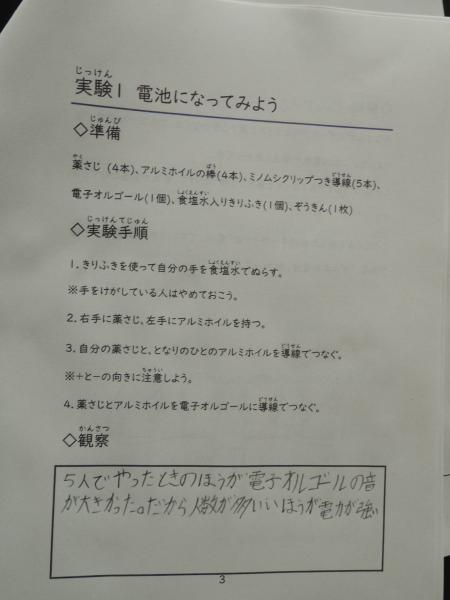 じっけん
実験1 電池になってみよう
じゅんび
◇準備
やく ぼう どうせん
薬さじ (4本)、アルミホイルの棒(4本)、ミノムシクリップつき導線(5本)、
しょくえんすい
電子オルゴール(1個)、食塩水入りきりふき(1個)、ぞうきん(1枚)
じっけんてじゅん
◇実験手順
しょくえんすい
1.きりふきを使って自分の手を食塩水でぬらす。
※手をけがしている人はやめておこう。
2.右手に薬さじ、左手にアルミホイルを持つ。
どうせん
3.自分の薬さじと、となりのひとのアルミホイルを導線でつなぐ。
ちゅうい
※+と-の向きに注意しよう。
どうせん
4.薬さじとアルミホイルを電子オルゴールに導線でつなぐ。
かんさつ
◇観察
5人でやったときのほうが電子オルゴールの音
が大きかった。だから人数が多いいほうが電力が強い
3